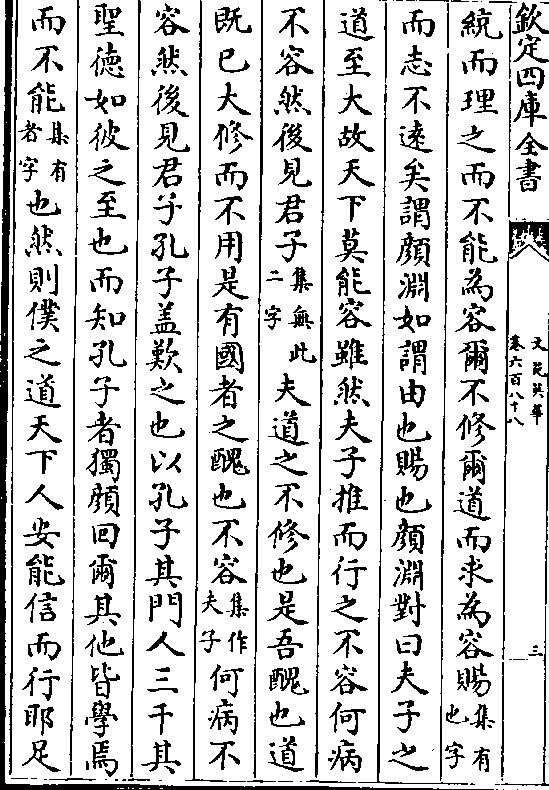 欽定四庫全書
文苑英華
卷六百八十八
三
統而理之而不能為容爾不修爾道而求為容賜集有也字
而志不遠矣謂顏淵如謂由也賜也顏淵對曰夫子之
道至大故天下莫能容雖然夫子推而行之不容何病
不容然後見君子集無此二字夫道之不修也是吾醜也道
既已大修而不用是有國者之醜也不容集作夫子何病不
容然後見君子孔子蓋歎之也以孔子其門人三千其
聖德如彼之至也而知孔子者獨顏回爾其他皆學焉
而不能集有者字也然則僕之道天下人安能信而行耶足